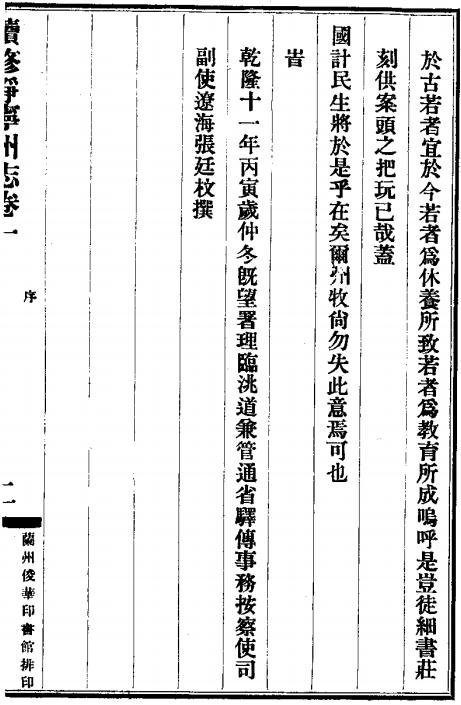 於古若者宜於今若者爲休養所致若者爲教育所成嗚呼是豈徒細書莊
刻供案頭之把玩已哉蓋
國計民生將於是乎在矣爾州牧尙勿失此意焉可也
旹
乾隆十一年丙寅歲仲冬旣望署理臨洮道兼管通省驛傳事務按察使司
副使遼海張廷枚撰
續修靜寧州志卷一
序
二
蘭州俊華印書館排印